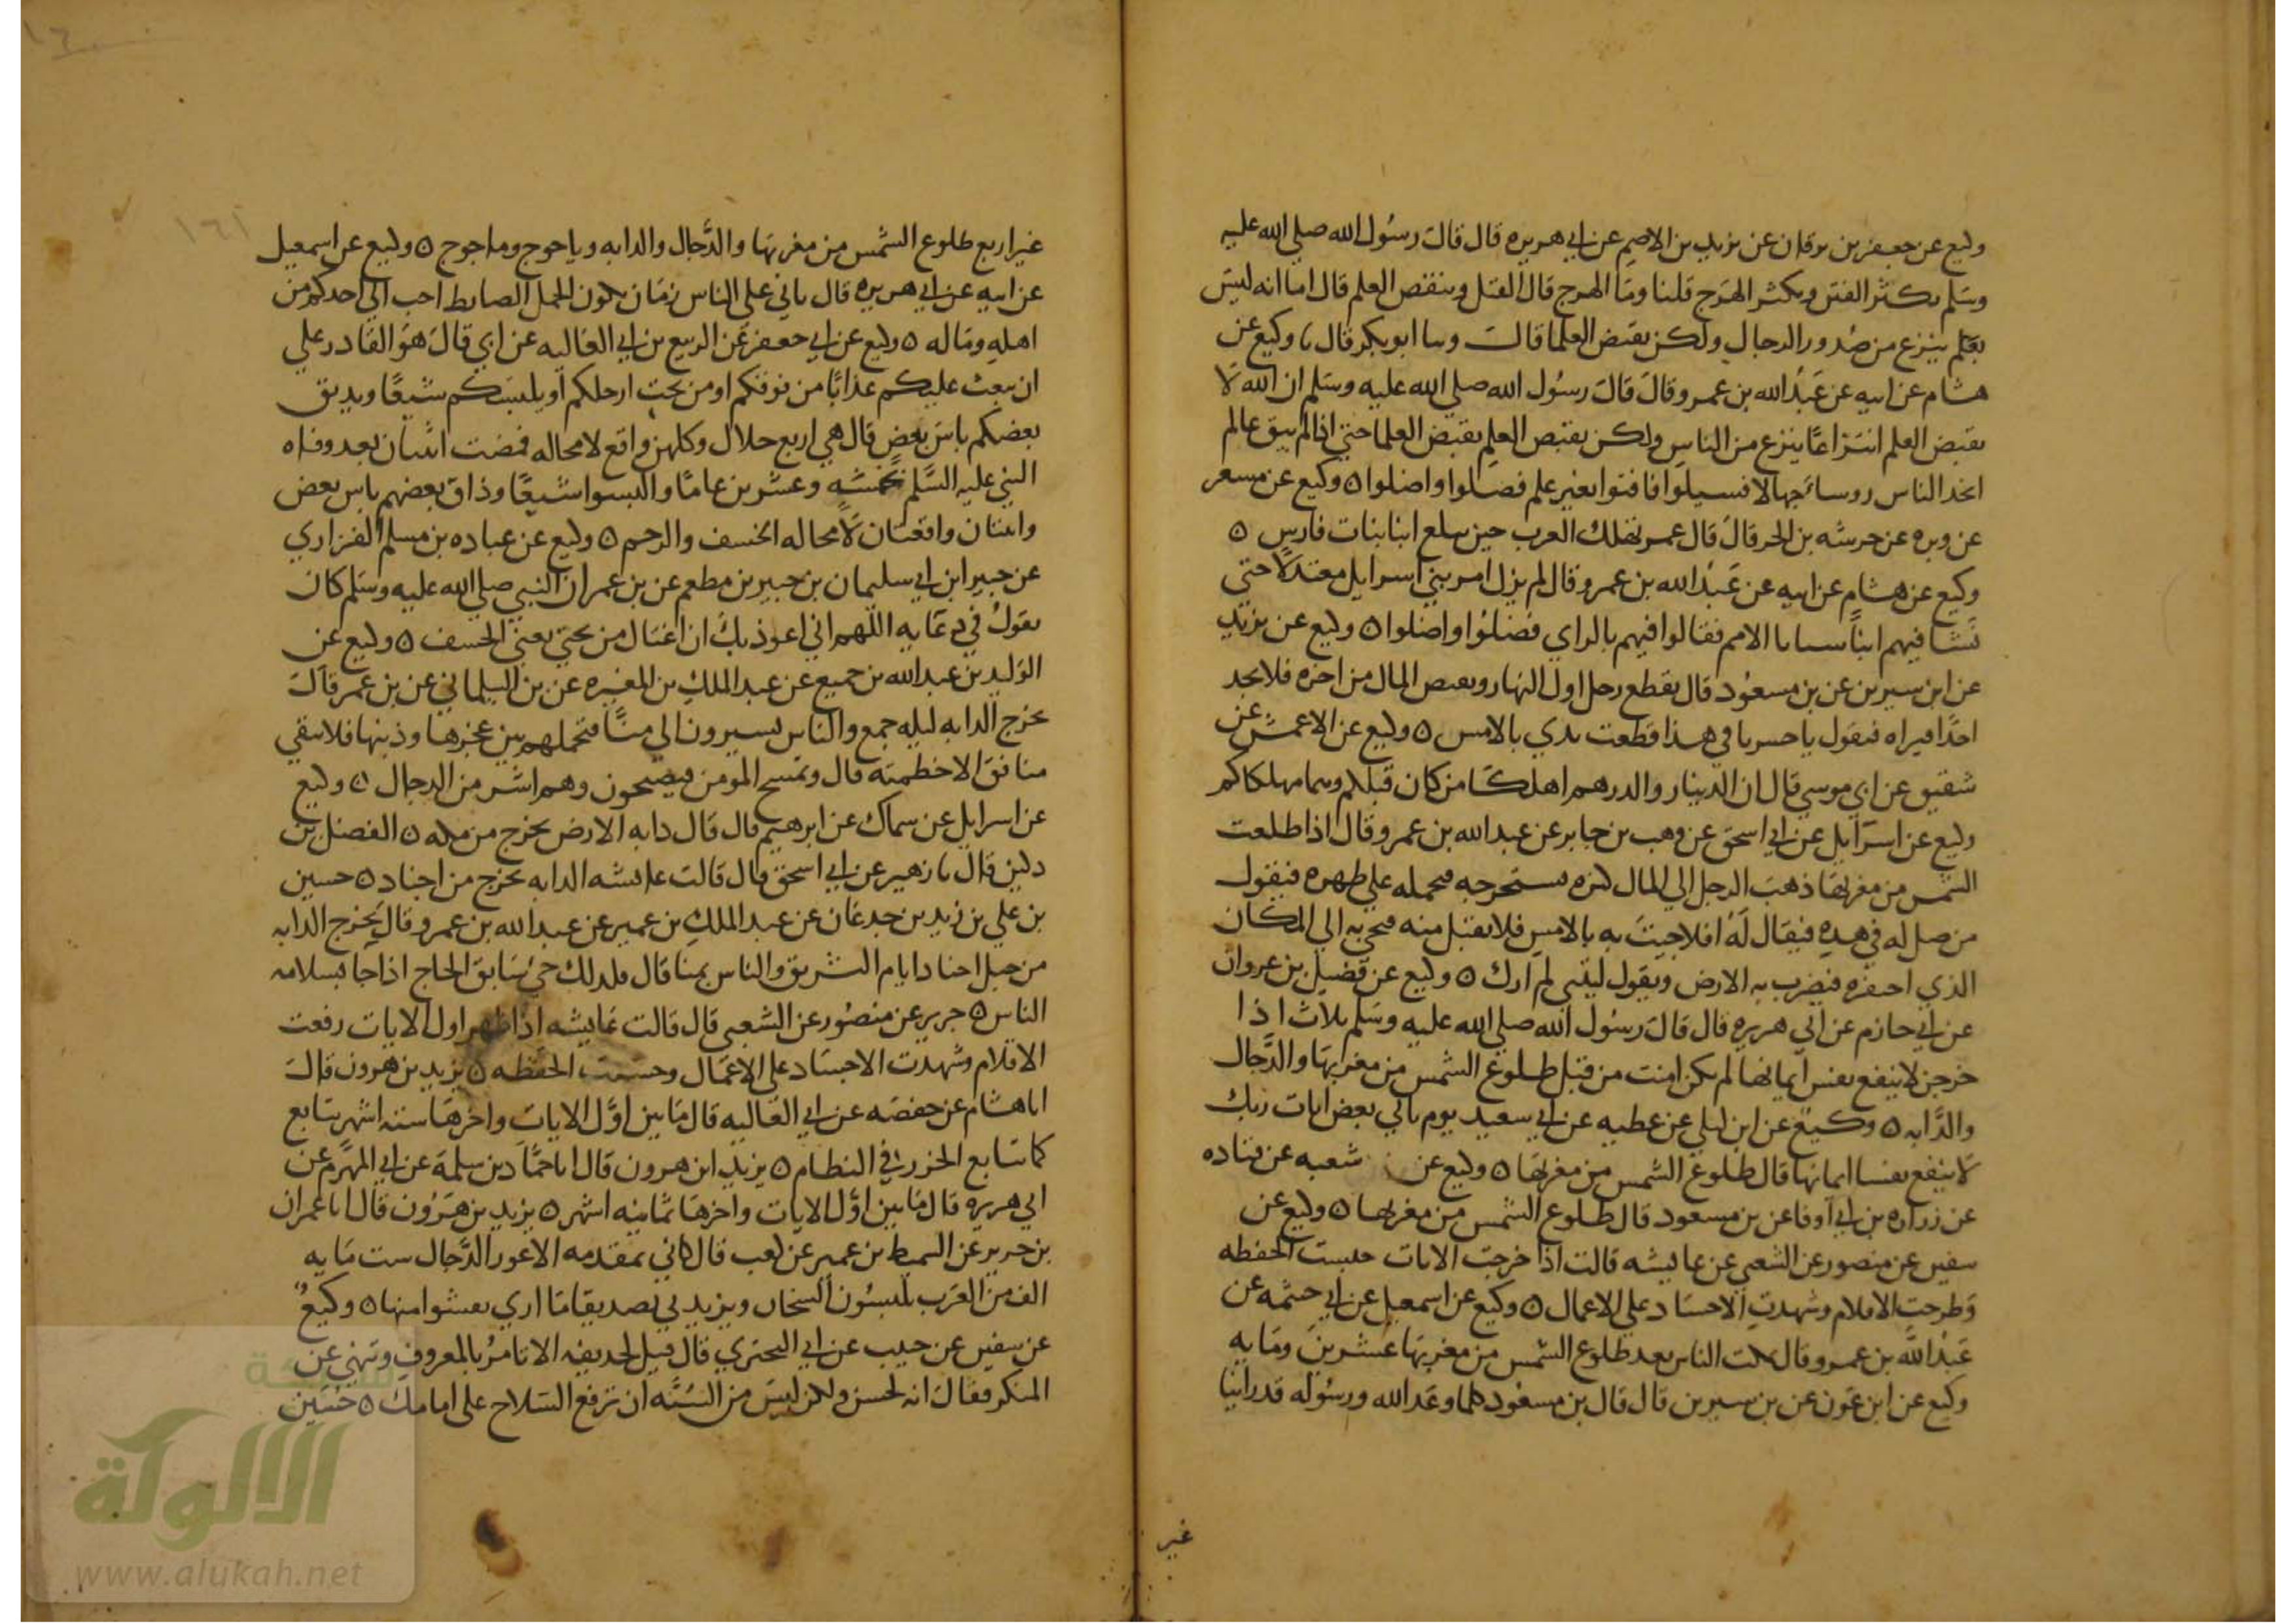 وكيع عن جعفر بن برقان عن يزيد بن الاصم عن ابي هريره قال قال رسول الله صلى الله عليه
وسلم تكثر الفتن ويكثر الهرج قلنا وما الهرج قال القتل وينقص العلم قال اما انه ليس
بعلم ينزع من صدور الرجال ولكن بقبض العلما قال وسا ابو بكر قال نا وكيع عن
هشام عن ابيه عن عبد الله بن عمرو قال قال رسول الله صلى الله عليه وسلم ان الله لا
يقبض العلم انتزاعا ينزع من الناس ولكن يقبض العلم بقبض العلما حتى اذا لم يبق عالم
اتخذ الناس روسا جهالا فسيلوا فافتوا بغير علم فضلوا واضلوا ه وكيع عن مسعر
عن وبره عن خرشه بن الحر قال قال عمر تهلك العرب حين تبلغ ابنا بنات فارس ه
وكيع عن هشام عن ابيه عن عبد الله بن عمرو قال لم يزل امر بني اسرايل معتدلا حتى
نشا فيهم ابنا سبايا الامم فقالوا فيهم بالراي فضلوا واضلوا ه وكيع عن يزيد
عن ابن سيرين عن بن مسعود قال يقطع رجل اول النهار ويفيض المال من اخره فلا يجد
احدا فيراه فيقول يا حسرتا في هذا قطعت يدي بالامس ه وكيع عن الاعمش عن
شقيق عن ابي موسى قال ان الدينار والدرهم اهلكا من كان قبلكم وهما مهلكاكم
وكيع عن اسرايل عن ابي اسحق عن وهب بن جابر عن عبد الله بن عمرو قال اذا طلعت
الشمس من مغربها ذهب الرجل الى المال كنزه فيستخرجه فيحمله على ظهره فيقول
من صل له في هذه فيقال له افلا جيت به بالامس فلا يقبل منه فيجي به الى المكان
الذي احتفره فيضرب به الارض ويقول ليتني لم ارك ه وكيع عن فضيل بن غزوان
عن ابي حازم عن ابي هريره قال قال رسول الله صلى الله عليه وسلم ثلاث اذا
خرجن لا ينفع نفس ايمانها لم تكن امنت من قبل طلوع الشمس من مغربها والدجال
والدابه ه وكيع عن ابن ليلي عن عطيه عن ابي سعيد يوم ياتي بعض ايات ربك
لا ينفع نفسا ايمانها قال طلوع الشمس من مغربها ه وكيع عن شعبه عن قتاده
عن زراره بن ابي اوفا عن بن مسعود قال طلوع الشمس من مغربها ه وكيع عن
سفين عن منصور عن الشعبي عن عايشه قالت اذا خرجت الايات حبست الحفظه
وطرحت الاقلام وشهدت الاجساد على الاعمال ه وكيع عن اسمعيل عن ابي خيثمه عن
عبد الله بن عمرو قال يمكث الناس بعد طلوع الشمس من مغربها عشرين ومايه
وكيع عن ابن عون عن بن سيرين قال قال بن مسعود كلما وعد الله ورسوله قد راينا
غير
غير اربع طلوع الشمس من مغربها والدجال والدابه وياجوج وماجوج ه وكيع عن اسمعيل
عن ابيه عن ابي هريره قال ياتي على الناس زمان يكون الجمل الضابط احب الى احدكم من
اهله وماله ه وكيع عن ابي جعفر عن الربيع بن ابي العاليه عن ابي قال هو القادر على
ان يبعث عليكم عذابا من فوقكم او من تحت ارجلكم او يلبسكم شيعا ويذيق
بعضكم باس بعض قال هي اربع خلال وكلهن واقع لا محاله فمضت اثنتان بعد وفاه
النبي عليه السلم بخمسه وعشرين عاما والبسوا شيعا وذاق بعضهم باس بعض
واثنتان واقعتان لا محاله الخسف والرجم ه وكيع عن عباده بن مسلم الفزاري
عن جبير ابن ابي سليمان بن جبير بن مطعم عن بن عمر ان النبي صلى الله عليه وسلم كان
يقول في دعايه اللهم اني اعوذ بك ان اغتال من تحتي يعني الخسف ه وكيع عن
الوليد بن عبد الله بن جميع عن عبد الملك بن المغيره عن بن البيلماني عن بن عمر قال
تخرج الدابه ليله جمع والناس يسيرون الى منا فتحملهم بين عجزها وذنبها فلا يبقي
منافق الا خطمته قال وتمسح المومن فيصبحون وهم اشر من الدجال ه وكيع
عن اسرايل عن سماك عن ابرهيم قال قال دابه الارض تخرج من مكه ه الفضل بن
دكين قال نا زهير عن ابي اسحق قال قالت عايشه الدابه تخرج من اجناد ه حسين
بن علي بن زيد بن جدعان عن عبد الملك بن عمير عن عبد الله بن عمرو قال تخرج الدابه
من جبل اجناد ايام التشريق والناس بمنا قال فلذلك حي سابق الحاج اذا جا بسلامه
الناس ه جرير عن منصور عن الشعبي قال قالت عايشه اذا ظهر اول الايات رفعت
الاقلام وشهدت الاجساد على الاعمال وحبست الحفظه ه يزيد بن هرون قال
انا هشام عن حفصه عن ابي العاليه قال ما بين اول الايات واخرها سته اشهر تتابع
كما تتابع الخرز في النظام ه يزيد ابن هرون قال انا حماد بن سلمة عن ابي المهزم عن
ابي هريره قال ما بين اول الايات واخرها ثمانيه اشهر ه يزيد بن هرون قال انا عمران
بن حدير عن السميط بن عمير عن كعب قال كاني بمقدمه الاعور الدجال ست مايه
الف من العرب يلبسون السيجان ويزيدني تصديقا ما ارى يفشوا منها ه وكيع
عن سفين عن حبيب عن ابي البختري قال قيل لحذيفه الا تامر بالمعروف وتنهي عن
المنكر فقال انه لحسن ولكن ليس من السنه ان ترفع السلاح على امامك ه حسين
الالوكة
www.alukah.net